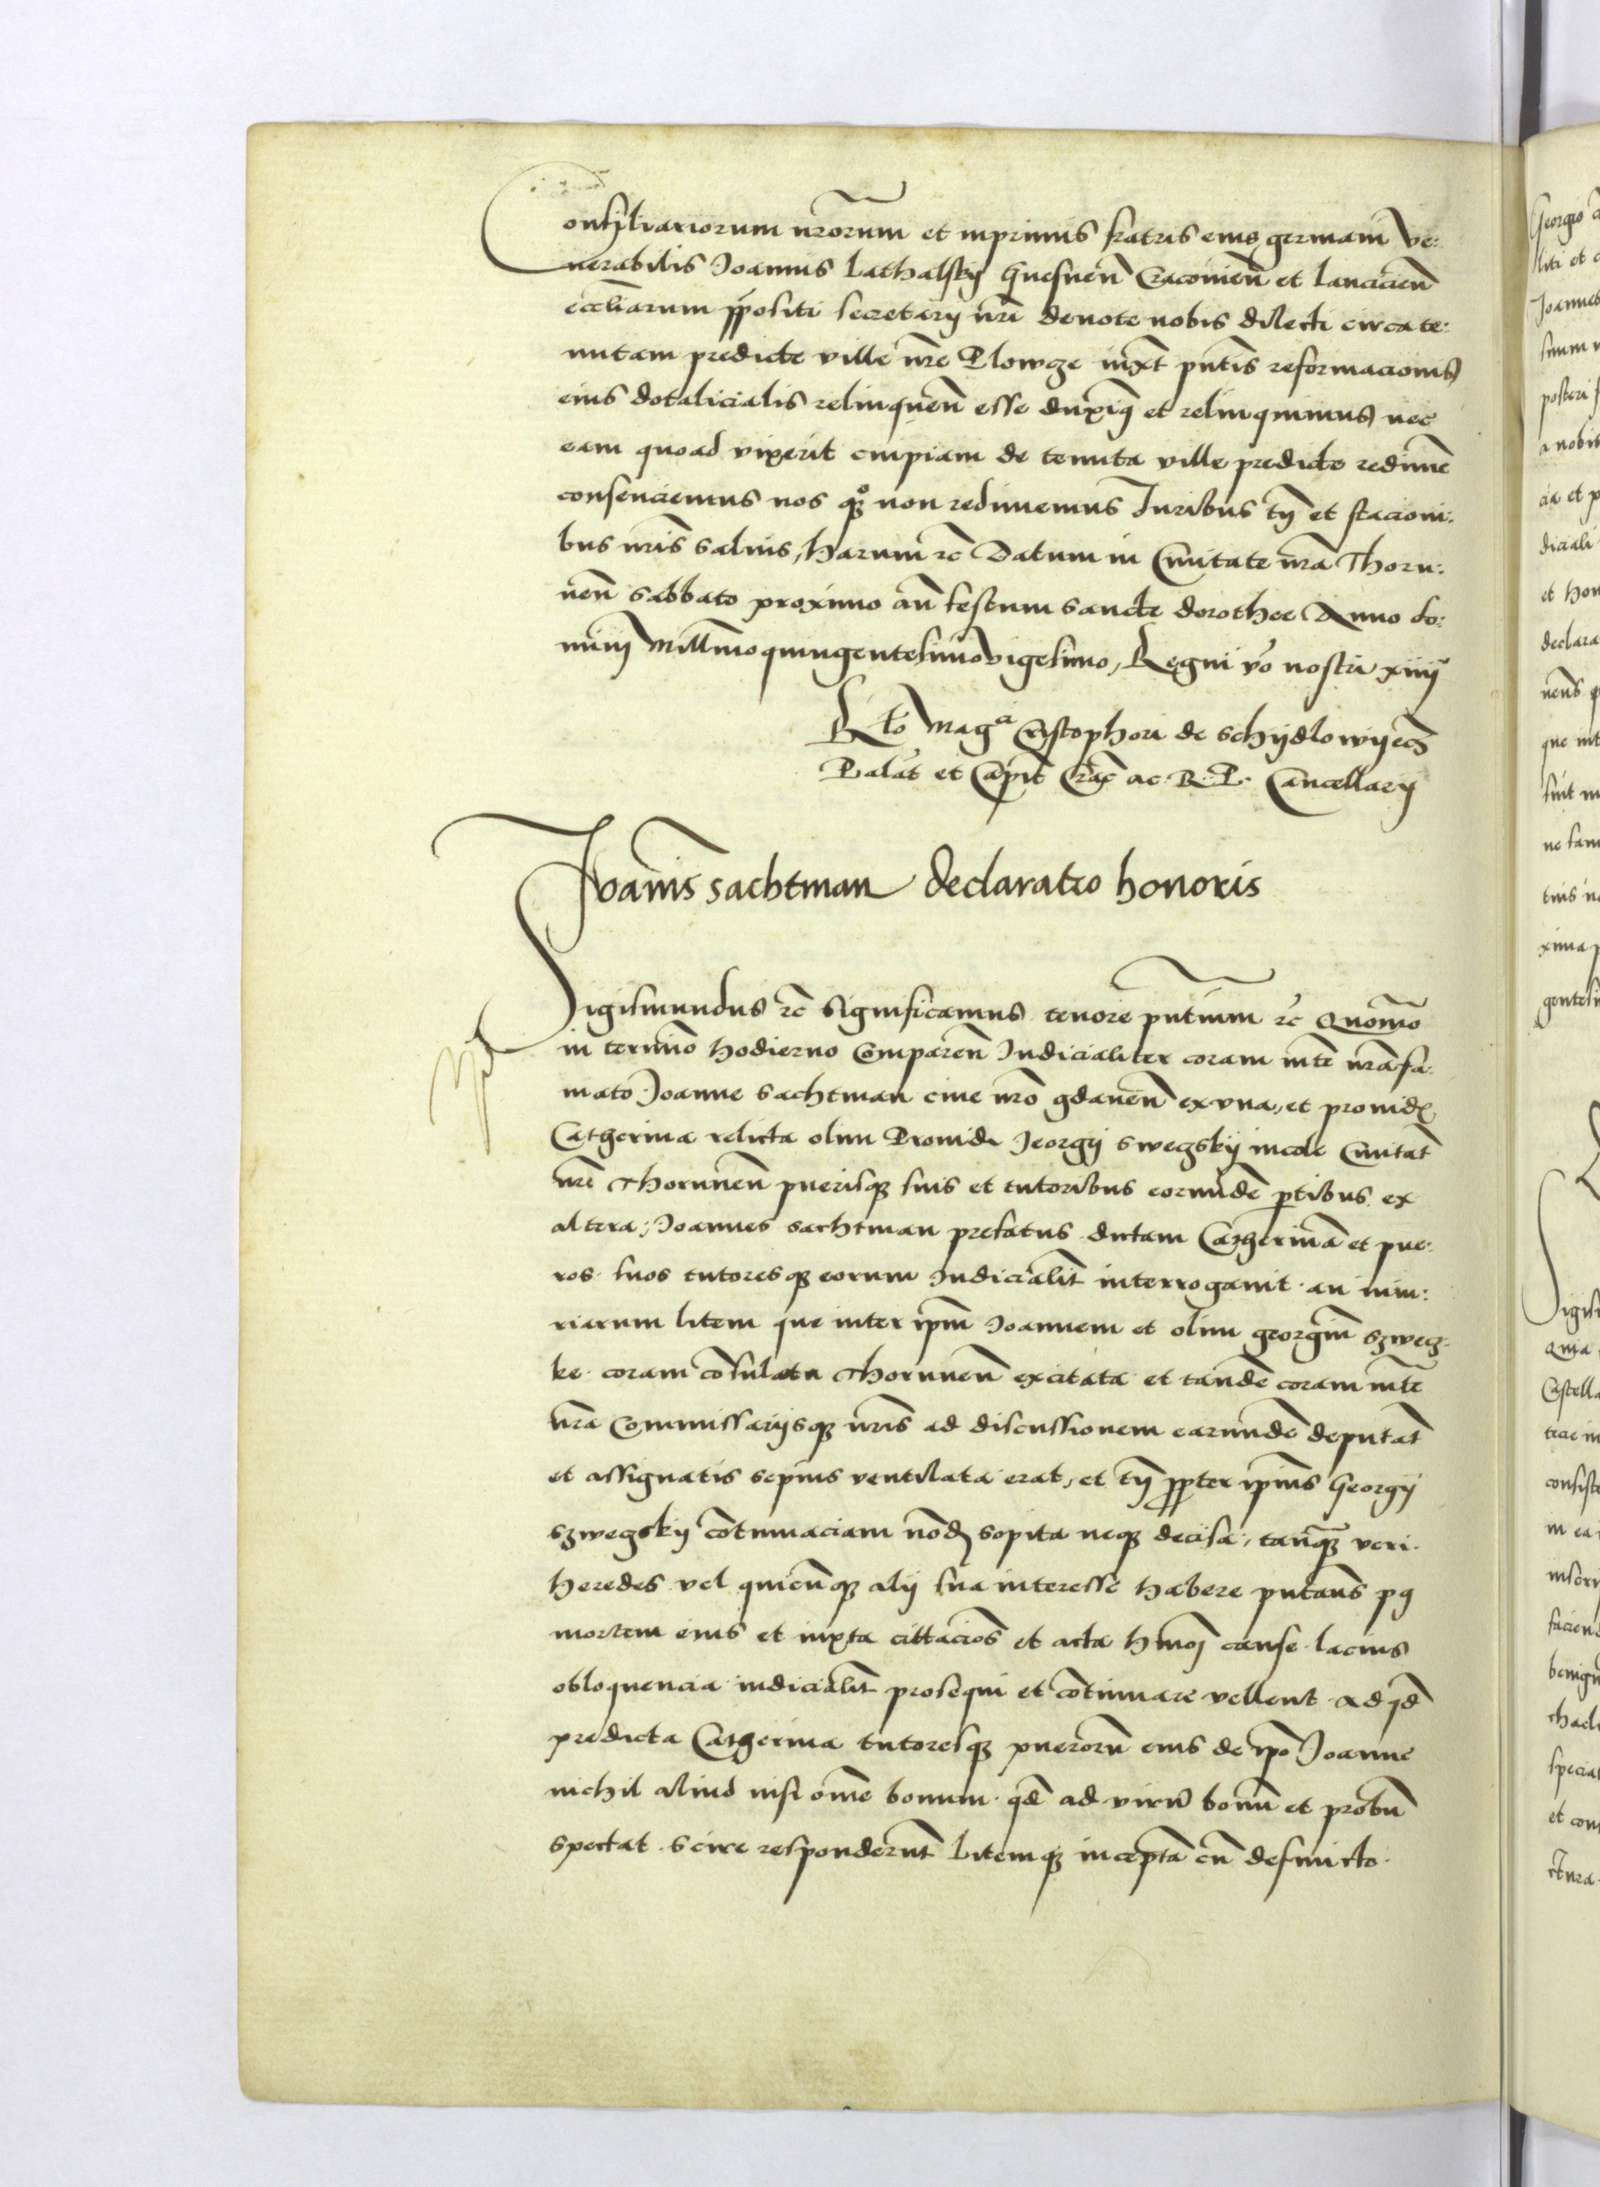 Consyliariorum nrorum et inprimis fratris eius germani ve:
nerabilis Joannis Lathalsky Gnesnen Cracovien et Lancicien
eccliarum ppositi secretarij nri devote nobis dilecti circa te:
nutam predicte ville nre Plowze iuxt pntis reformacionis
eius dotalicialis relinquen esse duximq et relinquimus nec
eam quoad vixerit cuipiam de tenuta ville predicte redime
consenciemus nos qz non redimemus Juribus tn et stacioni:
bus nris salvis, harum rc Datum in Civitate nra Thoru:
nen sabbato proximo an festum sancte dorothee Anno do:
mini Millmo quingentesimovigesimo, Regni vo nostri xiiij
Rlo Magci Cristophori de Schijdlowijecz
Palat et Capit Crac ac R. P. Cancellarij
Joanis sachtman declaratio honoris
Sigismundus rc Significamus tenore pntium rc Quomo
in termino hodierno Comparen Judicialiter coram mte nra fa:
mato Joanne sachtman cive nro gdanen ex vna, et provid
Catherina relicta olim Providi Jeorgij swegskij incole Civitat
nre Thorunen puerisqz suis et tutoribus eorunde ptibus ex
altera, Joannes sachtman prefatus dictam Catherina et pue:
ros suos tutoresqz eorum Judicialit interrogavit an iniu:
riarum litem que inter ipm Joannem et olim georgiu szweg
ke coram consulatu Thorunen excitata et tande coram mte
nra Commissarijsqz nris ad discussionem earunde deputat
et assignatis sepius ventilata erat, et tn ppter ipius Georgij
szwegskij contumaciam nond sopita neqz decisa, tanqz veri
heredes vel quicunqz alij sua interesse habere putans pq
mortem eius et iuxta cittacios et acta hmoj cause lacius
obloquencia iudicialit prosequi et continuare vellent Ad qd
predicta Catherina tutoresqz pueroru eius de ipo Joanne
nichil aliud nisi ome bonum qd ad viru bonu et probu
spectat scire responderunt Litemqz incepta cu defuncto